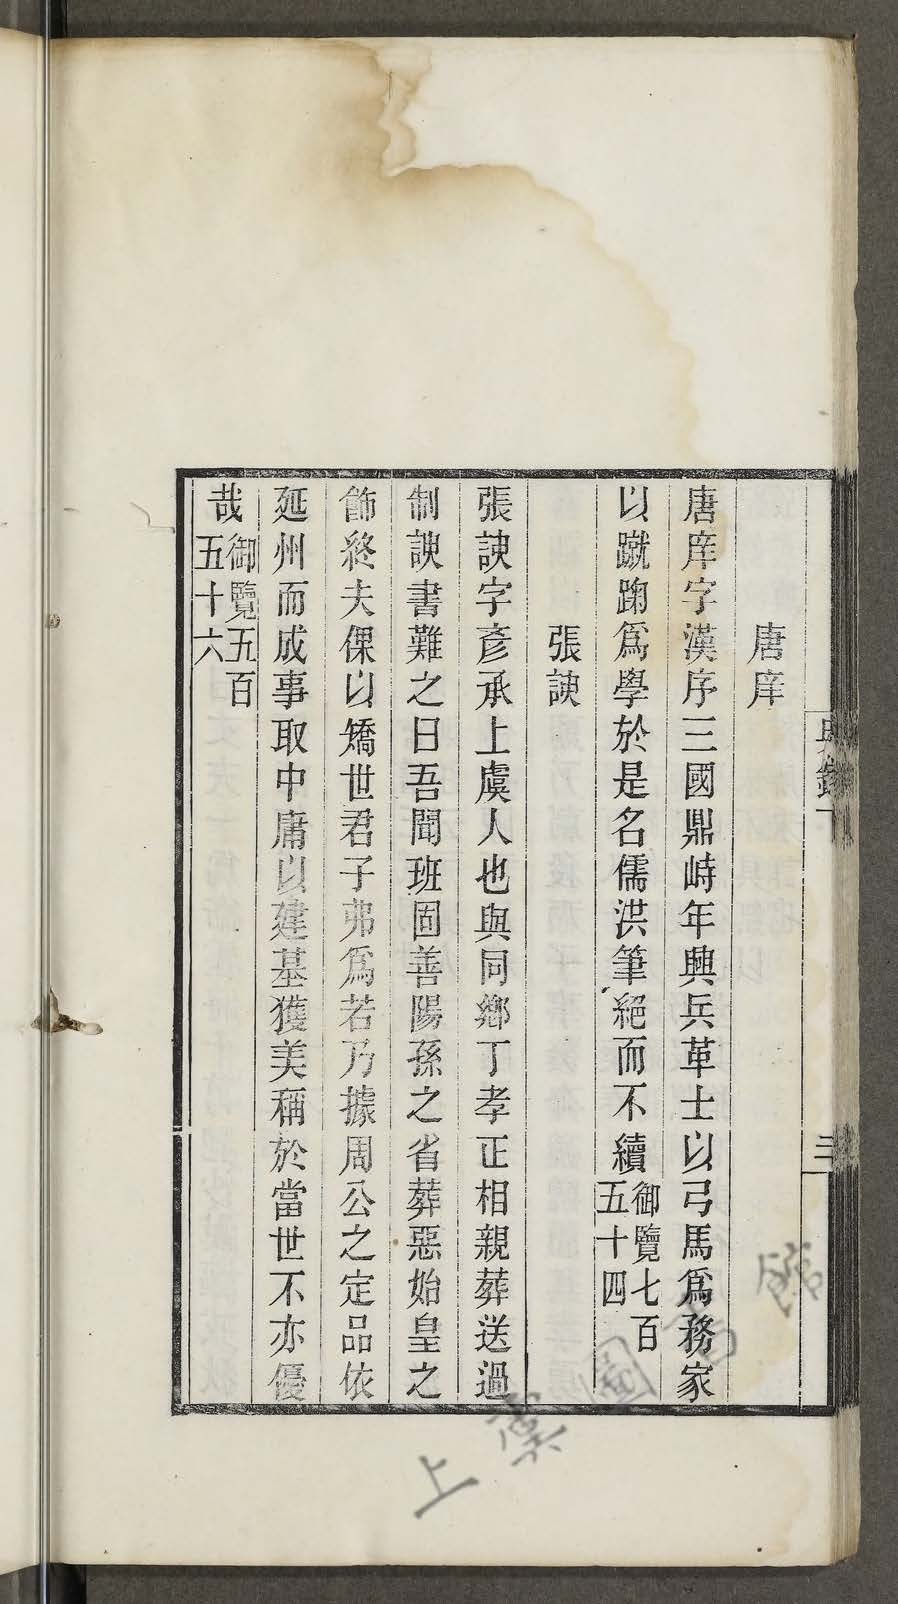 唐庠
唐庠字漢序三國鼎峙年興兵革士以弓馬爲務家
以蹴踘爲學於是名儒洪筆絕而不續御覽七百
五十四
張諛
張諛字彥承上虞人也與同鄉丁孝正相親葬送過
制諛書難之曰吾聞班固善陽孫之省葬惡始皇之
飾終夫倮以矯世君子弗爲若乃據周公之定品依
延州而成事取中庸以建基獲美稱於當世不亦優
哉御覽五百
五十六
錄下
三
上虞圖書館